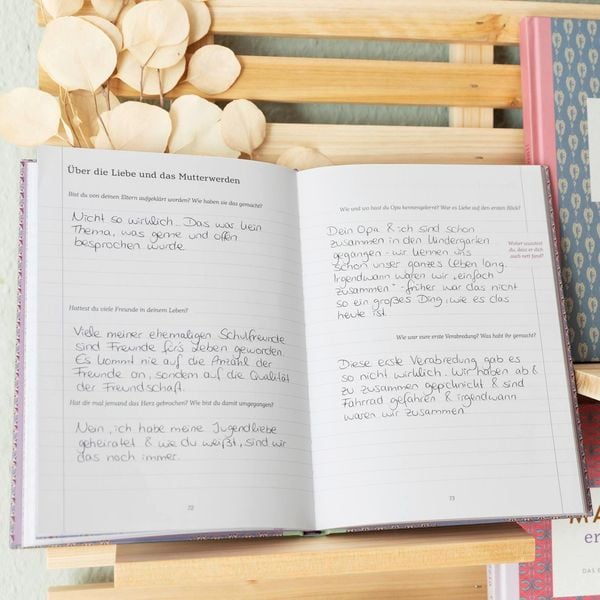 Über die Liebe und das Mutterwerden
Bist du von deinen Eltern aufgeklärt worden? Wie haben sie das gemacht?
Nicht so wirklich. Das war kein
Thema, was gerne und offen
besprochen wurde.
Hattest du viele Freunde in deinem Leben?
Viele meiner ehemaligen Schulfreunde
sind Freunde fürs Leben geworden.
Es kommt nie auf die Anzahl der
Freunde an, sondern auf die Qualität
der Freundschaft.
Hat dir mal jemand das Herz gebrochen? Wie bist du damit umgegangen?
Nein, ich habe meine Jugendliebe
geheiratet & wie du weißt, sind wir
das noch immer.
72
Wie und wo hast du Opa kennengelernt? War es Liebe auf den ersten Blick?
Dein Opa & ich sind schon
zusammen in den Kindergarten
gegangen - wir kennen uns
schon unser ganzes Leben lang.
Irgendwann waren wir „einfach
zusammen" - früher war das nicht
so ein großes Ding, wie es das
heute ist.
Woher wusstest
du, dass er dich
auch nett fand?
Wie war eure erste Verabredung? Was habt ihr gemacht?
Diese erste Verabredung gab es
so nicht wirklich. Wir haben ab &
zu zusammen gepicknickt & sind
Fahrrad gefahren & irgendwann
waren wir zusammen.
73
MA
er
DAS